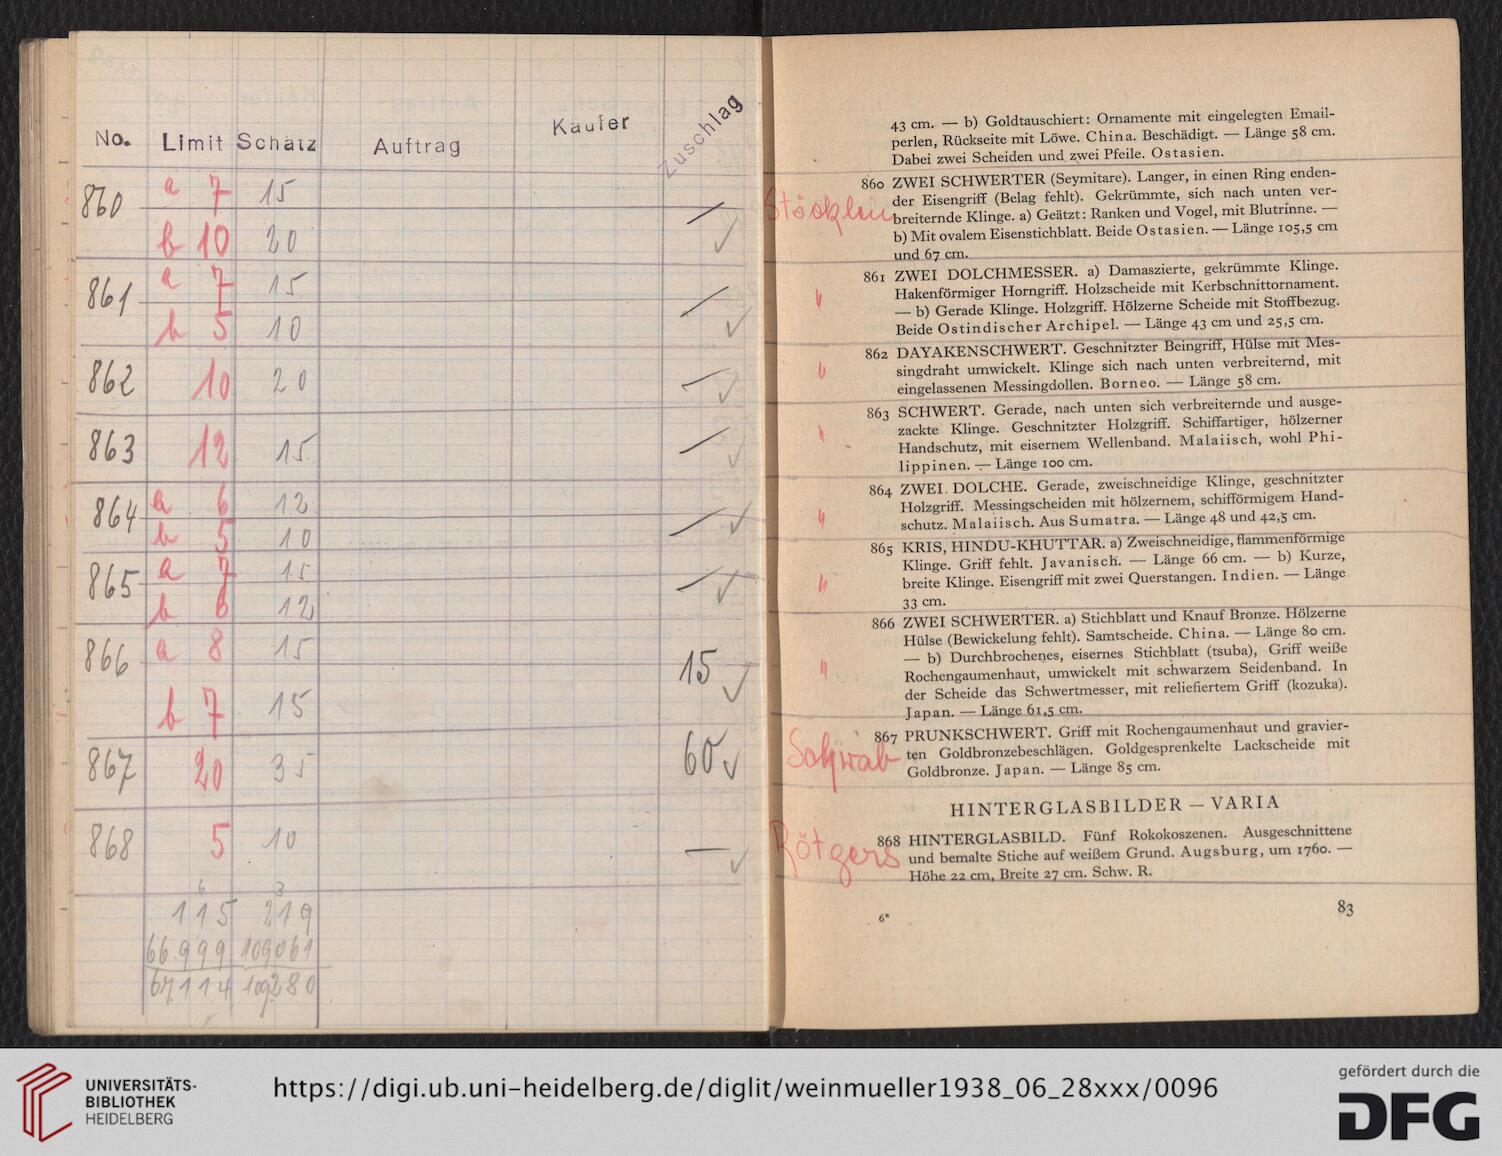 No. Limit Schätz Auftrag Käufer Zuschlag
860 a 7 15
b 10 20 — ✓
861 a 7 15
b 5 10 — ✓
862 10 20 — ✓
863 12 15 — ✓
864 a 6 12
b 5 10 — ✓
865 a 7 15
b 6 12 — ✓
866 a 8 15 15 ✓
b 7 15
867 20 35 60 ✓
868 5 10 — ✓
6 3
115 219
66.999 109061
67114 109280
43 cm. — b) Goldtauschiert: Ornamente mit eingelegten Email-
perlen, Rückseite mit Löwe. China. Beschädigt. — Länge 58 cm.
Dabei zwei Scheiden und zwei Pfeile. Ostasien.
860 ZWEI SCHWERTER (Seymitare). Langer, in einen Ring enden-
der Eisengriff (Belag fehlt). Gekrümmte, sich nach unten ver-
Stöcklein breiternde Klinge. a) Geätzt: Ranken und Vogel, mit Blutrinne. —
b) Mit ovalem Eisenstichblatt. Beide Ostasien. — Länge 105,5 cm
und 67 cm.
861 ZWEI DOLCHMESSER. a) Damaszierte, gekrümmte Klinge.
" Hakenförmiger Horngriff. Holzscheide mit Kerbschnittornament.
— b) Gerade Klinge. Holzgriff. Hölzerne Scheide mit Stoffbezug.
Beide Ostindischer Archipel. — Länge 43 cm und 25,5 cm.
862 DAYAKENSCHWERT. Geschnitzter Beingriff, Hülse mit Mes-
" singdraht umwickelt. Klinge sich nach unten verbreiternd, mit
eingelassenen Messingdollen. Borneo. — Länge 58 cm.
863 SCHWERT. Gerade, nach unten sich verbreiternde und ausge-
" zackte Klinge. Geschnitzter Holzgriff. Schiffartiger, hölzerner
Handschutz, mit eisernem Wellenband. Malaiisch, wohl Phi-
lippinen. — Länge 100 cm.
864 ZWEI DOLCHE. Gerade, zweischneidige Klinge, geschnitzter
Holzgriff. Messingscheiden mit hölzernem, schifförmigem Hand-
" schutz. Malaiisch. Aus Sumatra. — Länge 48 und 42,5 cm.
865 KRIS, HINDU-KHUTTAR. a) Zweischneidige, flammenförmige
Klinge. Griff fehlt. Javanisch. — Länge 66 cm. — b) Kurze,
" breite Klinge. Eisengriff mit zwei Querstangen. Indien. — Länge
33 cm.
866 ZWEI SCHWERTER. a) Stichblatt und Knauf Bronze. Hölzerne
Hülse (Bewickelung fehlt). Samtscheide. China. — Länge 80 cm.
— b) Durchbrochenes, eisernes Stichblatt (tsuba), Griff weiße
" Rochengaumenhaut, umwickelt mit schwarzem Seidenband. In
der Scheide das Schwertmesser, mit reliefiertem Griff (kozuka).
Japan. — Länge 61,5 cm.
867 PRUNKSCHWERT. Griff mit Rochengaumenhaut und gravier-
Schwab ten Goldbronzebeschlägen. Goldgesprenkelte Lackscheide mit
Goldbronze. Japan. — Länge 85 cm.
HINTERGLASBILDER — VARIA
868 HINTERGLASBILD. Fünf Rokokoszenen. Ausgeschnittene
Rötgers und bemalte Stiche auf weißem Grund. Augsburg, um 1760. —
Höhe 22 cm, Breite 27 cm. Schw. R.
6* 83
UNIVERSITÄTS-
BIBLIOTHEK
HEIDELBERG
https://digi.ub.uni-heidelberg.de/diglit/weinmueller1938_06_28xxx/0096
gefördert durch die
DFG